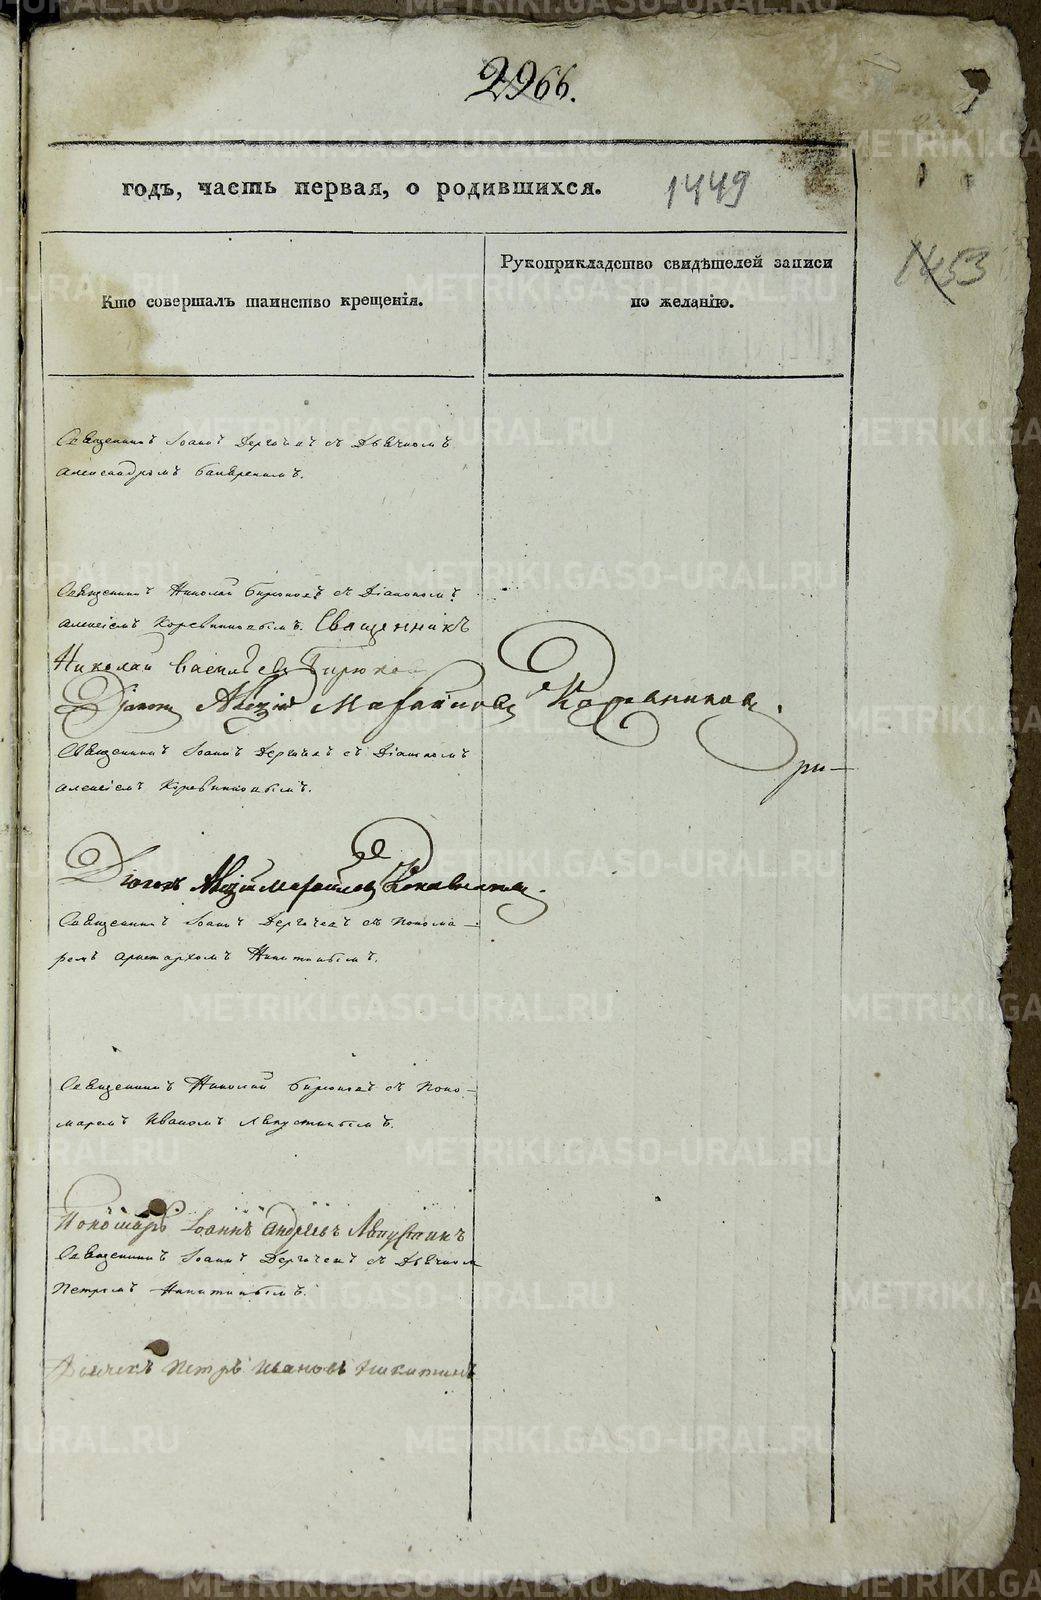 2966.
годъ, часть первая, о родившихся.
1449
1453
Кто совершалъ таинство крещенія.
Рукоприкладство свидѣтелей записи
по желанію.
Священникъ Іоаннъ с Дьячкомъ
Александромъ
Священникъ Николай Бирюковъ съ Діакономъ
Алексіемъ Коровниковымъ. Священникъ
Николай Васильевъ Бирюков
Діаконъ Алексій Михайловъ Коровниковъ.
Священникъ Іоаннъ съ Діакономъ
Алексіемъ Коровниковымъ.
ри—
Діаконъ Алексій Михайловъ Коровниковъ.
Священникъ Іоаннъ съ Понома—
ремъ Аристархомъ Никитинымъ.
Священникъ Николай Бирюковъ съ Поно—
маремъ Иваномъ Августинымъ.
Пономарь Іоаннъ Андреевъ Августинъ
Священникъ Іоаннъ съ Дьячком
Петромъ Никитинымъ.
Дьячекъ Петръ Ивановъ Никитинъ
METRIKI.GASO-URAL.RU